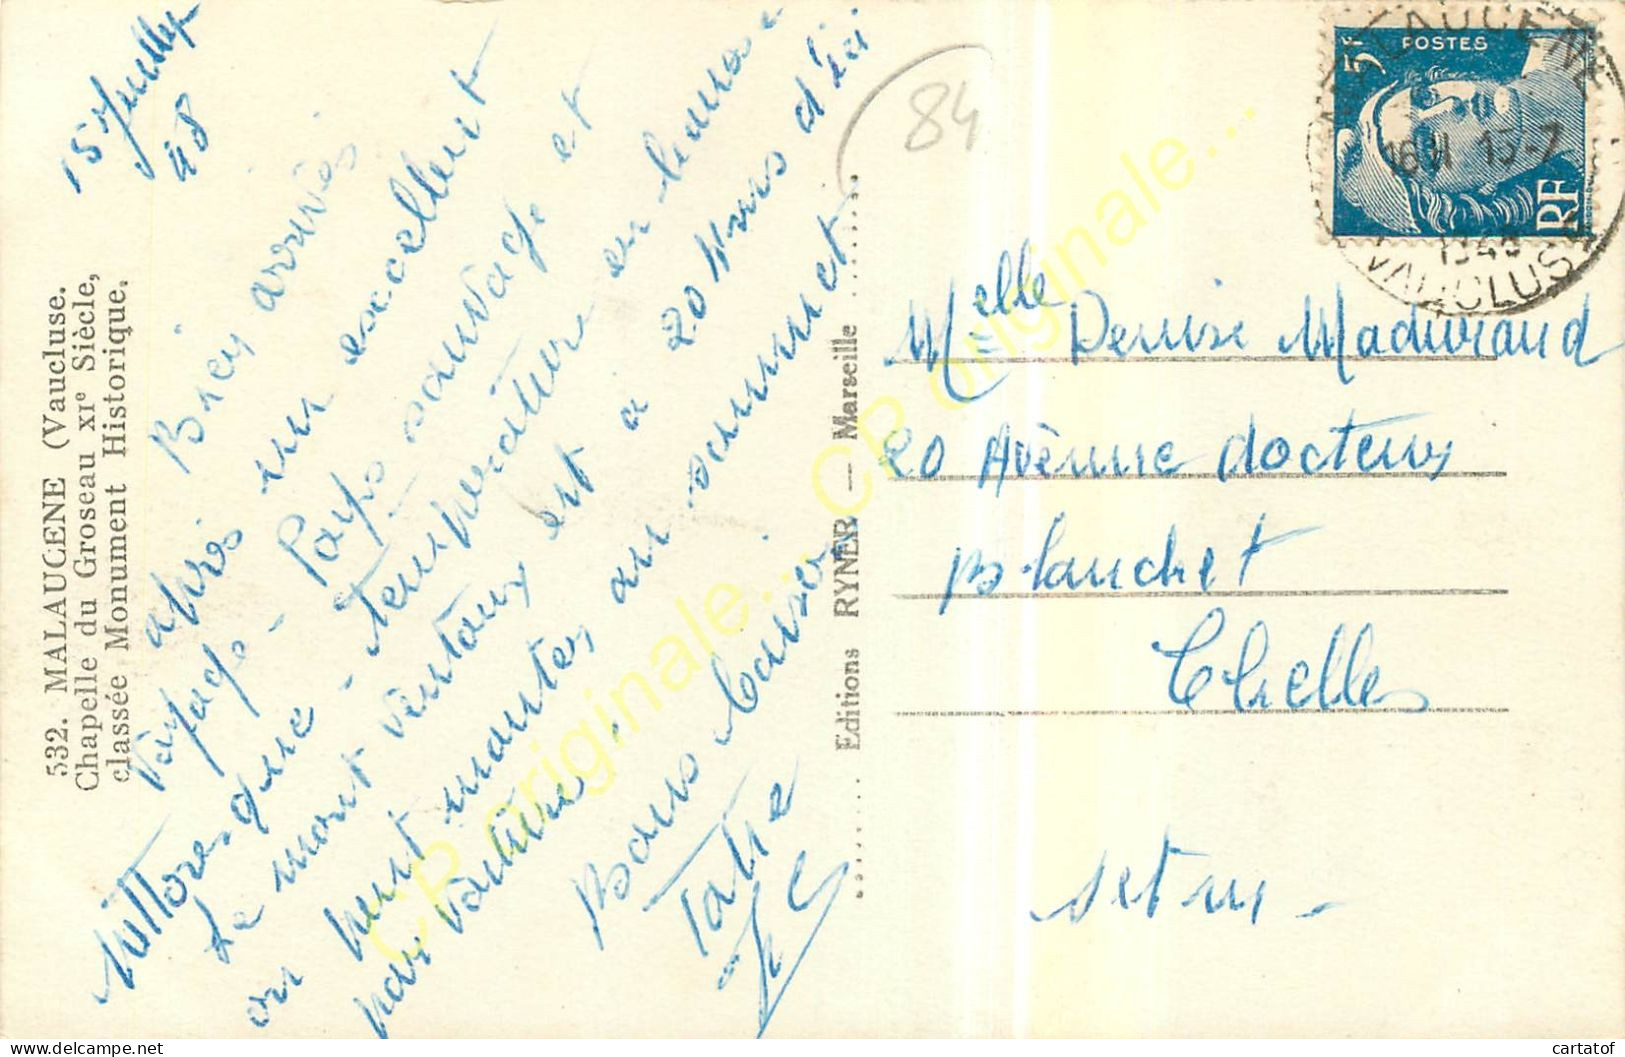 532. MALAUCENE (Vaucluse.
Chapelle du Groseau XIe Siècle,
classée Monument Historique.
15 Juillet
48
Bien arrivés
après un excellent
voyage - Pays sauvage et
pittoresque - température en hausse
Le mont Ventoux est à 20 Kms d'ici
on peut monter au sommet
par voiture.
Bons baisers
Tatie
Editions RYNER — Marseille
84
5F POSTES
RF
MALAUCENE
16 VI 15-7
1948
VAUCLUSE
Melle Denise Maduraud
20 Avenue docteur
Blanchet
Chelles
S et M -
CP originale...
CP originale...
CP originale...
cartatof